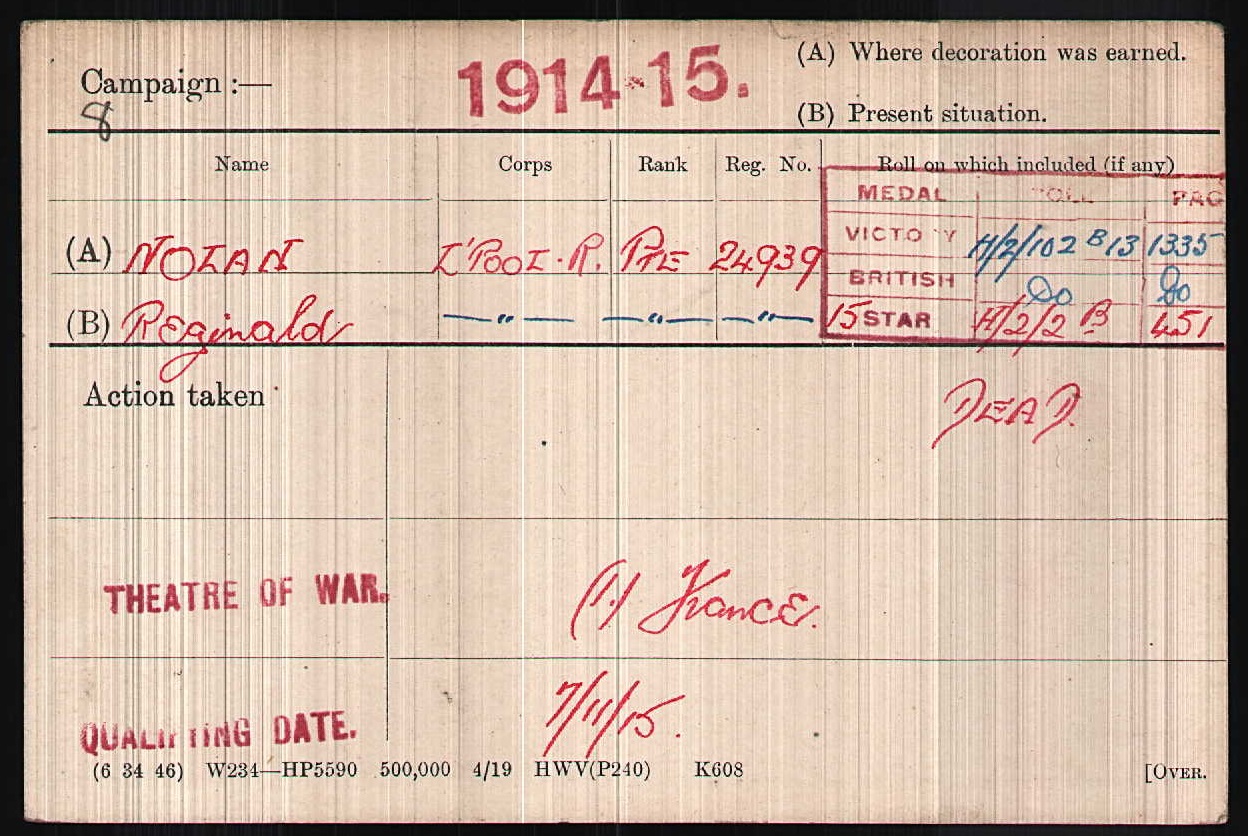 Campaign :— 1914-15. (A) Where decoration was earned.
8 (B) Present situation.
Name Corps Rank Reg. No. Roll on which included (if any)
MEDAL ROLL PAG
(A) NOLAN L'POOL.R. PTE 24939 VICTO Y H/2/102 B13 1335
BRITISH Do Do
(B) Reginald —"— —"— —"— 15 STAR H/2/2 B 451
Action taken DEAD.
THEATRE OF WAR. (1) France.
QUALIFYING DATE. 7/11/15.
(6 34 46) W234—HP5590 500,000 4/19 HWV(P240) K608 [OVER.